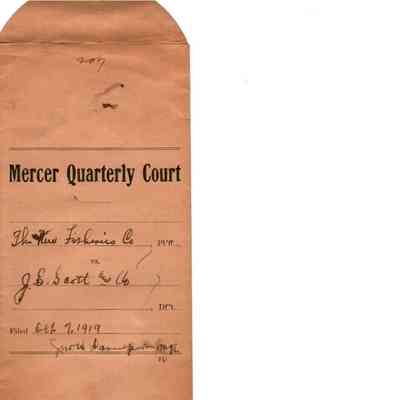 Mercer Quarterly Court
The New Fisheries Co Pltff.
vs.
J. E. Scott & Co
Dft.
Filed Oct 7, 1919